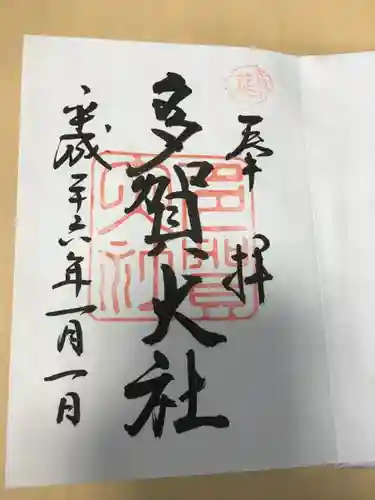 奉拝
多賀大社
平成二十六年一月一日
多賀大社